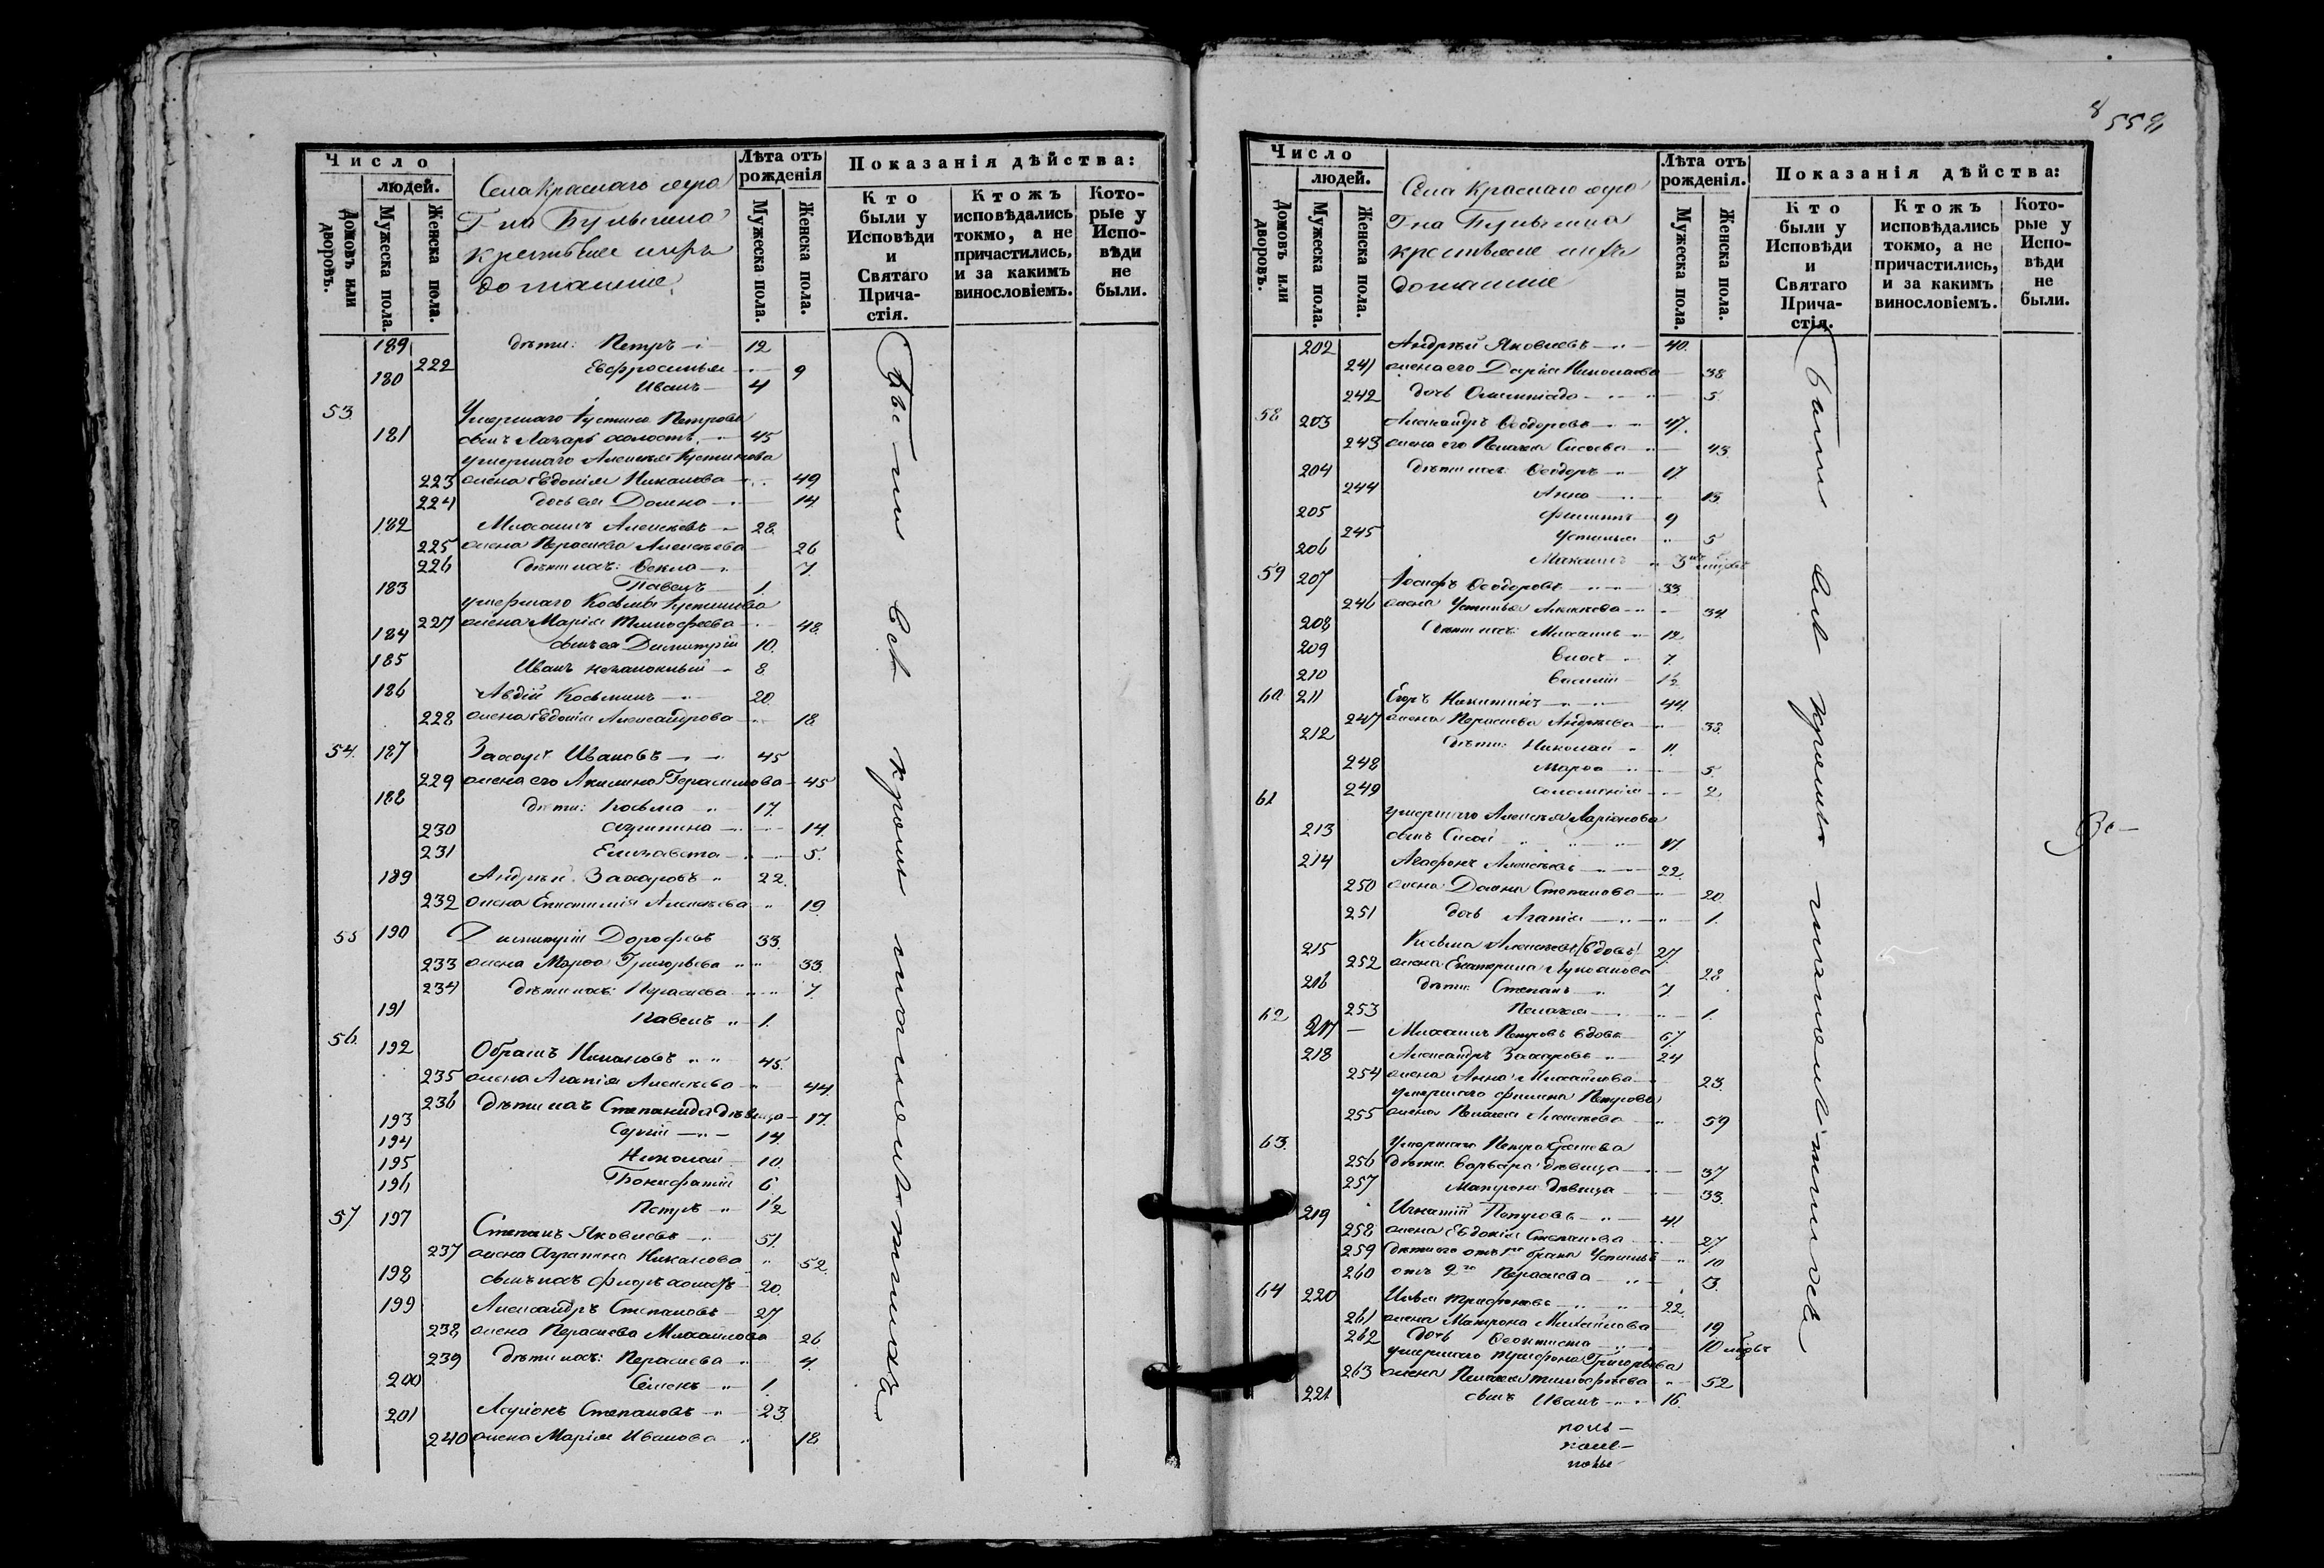 Число
людей.
Домовъ или дворовъ.
Мужеска пола.
Женска пола.
Села Краснаго
Г-на Булыгина
крестьяне ихъ
домашніе
Лѣта отъ рожденія
Мужеска пола.
Женска пола.
Показанія дѣйства:
Кто были у Исповѣди и Святаго Причастія.
Ктожъ исповѣдались токмо, а не причастились, и за какимъ винословіемъ.
Которые у Исповѣди не были.
189 дѣти: Петръ 12
222 Евфросинья 9
180 Иванъ 4
53. Умершаго Іустина Петрова
181 сынъ Лазарь холостъ 45
умершаго Алексѣя Іустинова
223 жена Евдокія 49
224 дочь ея Домна 14
182 Михаилъ Алексѣевъ 28
225 жена Параскева Алексѣева 26
226 дѣти ихъ: Ѳекла 7
183 Павелъ 1.
умершаго Косьмы Іустинова
227 жена Марія Тимофѣева 48
184 сынъ ея Димитрій 10.
185 Иванъ незаконный 8
186 Авдій Косьминъ 20.
228 жена Евдокія Александрова 18
54. 187 Захаръ Ивановъ 45
229 жена его Акилина Герасимова 45
188 дѣти: Косьма 17.
230 Агрипина 14.
231 Елизавета 5.
189 Андрей Захаровъ 22.
232 жена Епистимія Алексѣева 19
55 190 Димитрій Дорофѣевъ 33.
233 жена Марѳа Григорьева 33.
234 дѣти ихъ: Параскева 7.
191 Павелъ 1.
56. 192 45.
235 жена Агапія Алексѣева 44
236 дѣти ихъ Степанида дѣвица 17.
193 Сергій 14.
194 Николай 10.
195 Вонифатій 6
196 Петръ 1½
57 197 Степанъ Яковлевъ 51.
237 жена Агрипина 52
198 сынъ ихъ Флоръ холостъ 20.
199 Александръ Степановъ 27
238 жена Параскева Михайлова 26
239 дѣти ихъ: Параскева 4.
200 Семенъ 1.
201 Ларіонъ Степановъ 23
240 жена Марія Иванова 18
Были всѣ кромѣ малолѣтнихъ
559
Число
людей.
Домовъ или дворовъ.
Мужеска пола.
Женска пола.
Села Краснаго
Г-на Булыгина
крестьяне ихъ
домашніе
Лѣта отъ рожденія.
Мужеска пола.
Женска пола.
Показанія дѣйства:
Кто были у Исповѣди и Святаго Причастія.
Ктожъ исповѣдались токмо, а не причастились, и за какимъ винословіемъ.
Которые у Исповѣди не были.
202 Андрей Яковлевъ 40.
241 жена его Дарія Николаева 38
242 дочь Олимпіада 5.
58 203 Александръ Ѳеодоровъ 47.
243 жена его Пелагея Сисоева 43.
204 дѣти ихъ: Ѳеодоръ 17.
244 Анна 13
205 Филиппъ 9
245 Устинья 5
206 Михаилъ 3
59 207 Іосифъ Ѳеодоровъ 33
246 жена Устинья Алексѣева 34.
208 дѣти ихъ: Михаилъ 12
209 Власъ 7.
210 Василій 1½
60. 211 Егоръ Никитинъ 44.
247 жена Параскева Андреева 38.
212 дѣти: Николай 11.
248 Марѳа 5.
249 Соломонія 2
61 умершаго Алексѣя Ларіонова
213 сынъ Сисой 17.
214 Агафонъ Алексѣевъ 22.
250 жена Домна Степанова 20
251 дочь Агапія 1.
215 Косьма Алексѣевъ 27.
252 жена Екатерина 28
216 дѣти: Степанъ 7.
253 Пелагея 1.
62 217 Михаилъ Петровъ вдовъ 67.
218 Александръ Захаровъ 24
254 жена Анна Михайлова 23.
умершаго Филипа Петрова
255 жена Пелагея Алексѣева 59
63. Умершаго Петра
256 дѣти: Варвара дѣвица 37.
257 Матрона дѣвица 33.
219 Игнатій Петровъ 41.
258 жена Евдокія Степанова 27.
259 дѣти его отъ 1го брака Устинья 10
260 отъ 2го Параскева 3.
64 220 Илья Трифоновъ 22
261 жена Матрона Михайлова 19
262 дочь Ѳеоктиста 10
умершаго Трифона Григорьева
263 жена Пелагея Тимофѣева 52
221 сынъ Иванъ 16.
Были всѣ кромѣ малолѣтнихъ